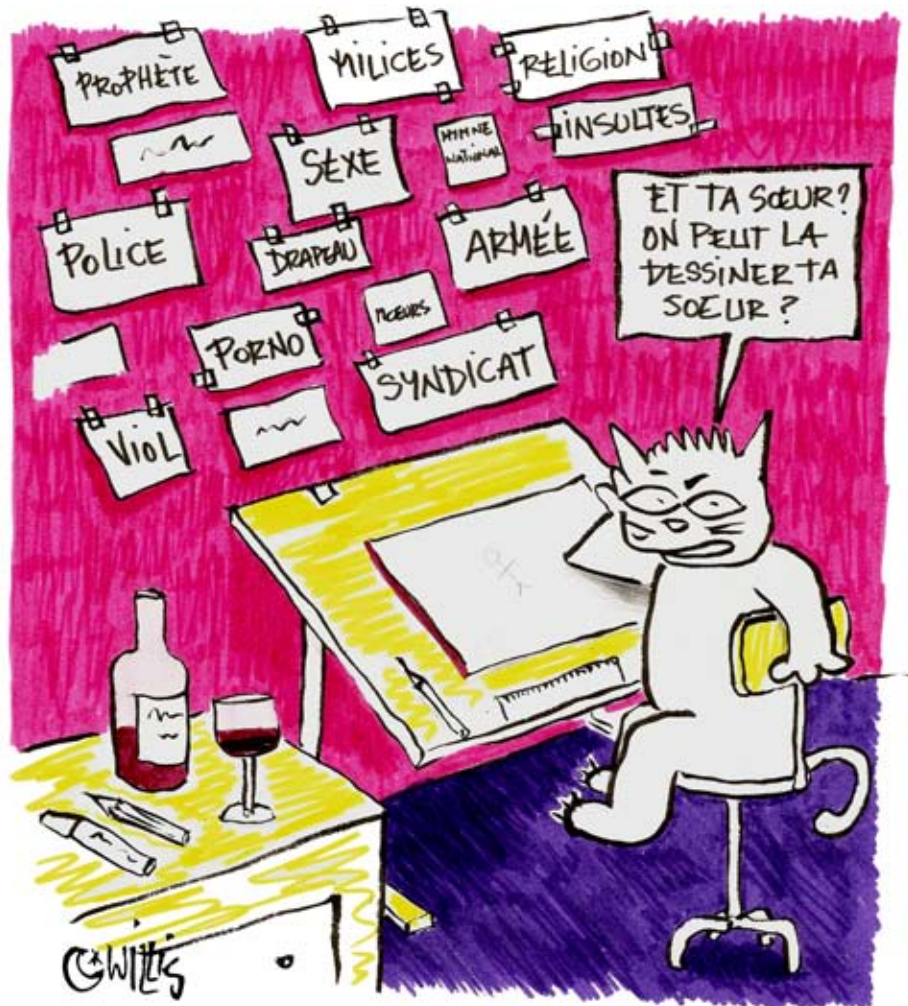 PROPHÈTE
MILICES
RELIGION
SEXE
HYMNE
NATIONAL
INSULTES
POLICE
DRAPEAU
ARMÉE
MOEURS
PORNO
SYNDICAT
VIOL
ET TA SŒUR?
ON PEUT LA
DESSINER TA
SŒUR ?
WILLIS